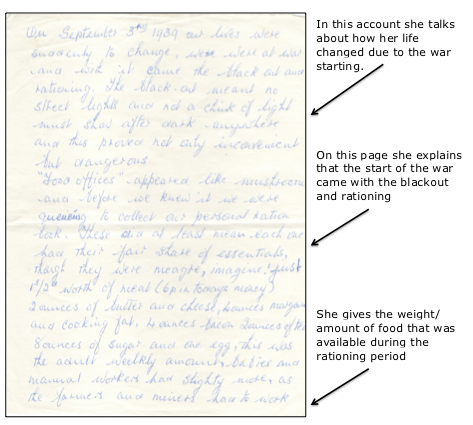 On September 3rd 1939 our lives were
suddenly to change, were were at war
and with it came the black out and
rationing. The black-out meant no
street lights and not a chink of light
must show after dark anywhere
and this proved not only inconvenient
but dangerous.
"Food offices" appeared like mushrooms
and before we knew it we were
queueing to collect our personal ration
book. These did at least mean each one
had their fair share of essentials,
though they were meagre, imagine! just
1s/2d worth of meat (6p in todays money)
2 ounces of butter and cheese, 4 ounces margarine
and cooking fat, 4 ounces bacon 2 ounces of tea
8 ounces of sugar and one egg, this was
the adult weekly amount, babies and
manual workers had slightly more, as
the farmers and miners had to work
In this account she talks
about how her life
changed due to the war
starting.
On this page she explains
that the start of the war
came with the blackout
and rationing
She gives the weight/
amount of food that was
available during the
rationing period